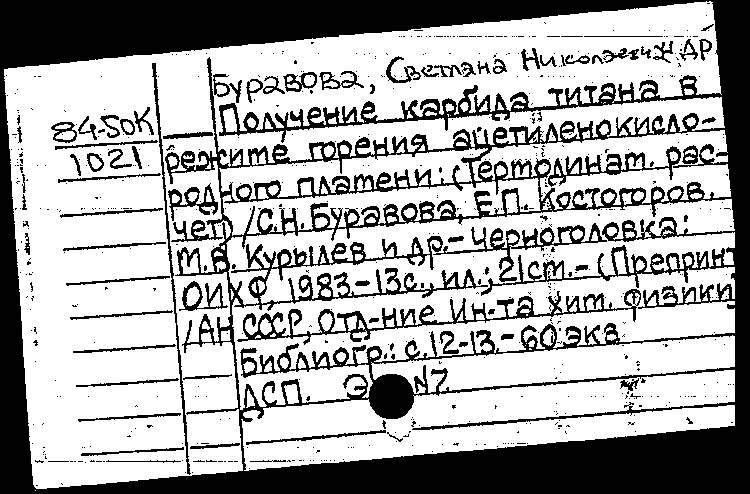 Буравова, Светлана Николаевна и др.
84-50К
1021
Получение карбида титана в
режиме горения ацетиленокисло-
родного пламени: (Термодинам. рас-
чет) /С.Н. Буравова, Е.П. Костогоров,
М.В. Курылев и др.- Черноголовка:
ОИХФ, 1983.-13с., ил.; 21см.- (Препринт
/АН СССР, Отд-ние Ин-та хим. физики)
Библиогр.: с.12-13.- 60 экз
ДСП. №7